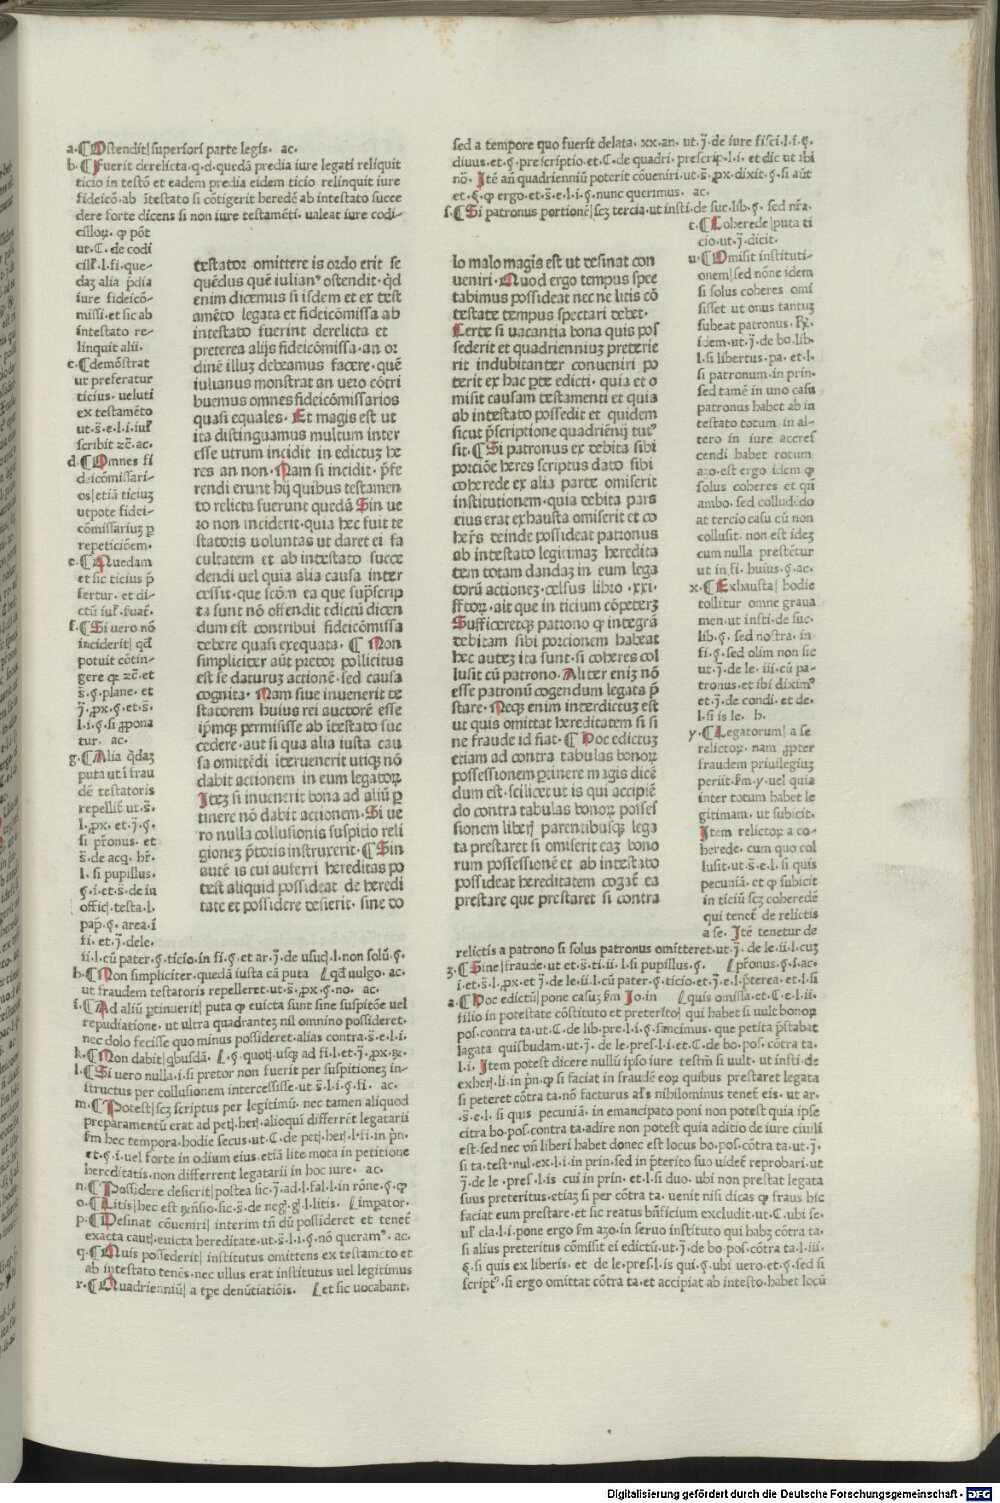 a. ¶ Ostendit| superiori parte legis. ac.
b. ¶ Fuerit derelicta. q.d. quedā predia iure legati reliquit
ticio in testō et eadem predia eidem ticio relinquit iure
fideicō. ab ītestato si cōtigerit heredē ab intestato succe
dere forte dicens si non iure testamēti. valeat iure codi-
cilloꝝ. ꝙ pōt
ut. C. de codi
cill. l. fi. que-
daꝫ alia p̄dia
iure fideicō-
missi. et sic ab
intestato re-
linquit alii.
c. ¶ demōstrat
ut preferatur
ticius. veluti
ex testamēto
ut. s̄. e. l. i. iul'
scribit ⁊c̄. ac.
d. ¶ Omnes fi
deicōmissari-
os| etiā ticiuꝫ
utpote fidei-
cōmissariuꝫ ꝑ
repeticiōem.
e. ¶ Quedam
et sic ticius p̄
fertur. et di-
f. ¶ Si vero nō
inciderit| qđ
potuit cōtin-
gere ꝙ ⁊c̄. et
s̄. §. plane. et
j̄. ꝓx. §. et. s̄.
l. i. §. si ꝓpona
tur. ac.
g. ¶ Alia q̄daꝫ
puta ut ī frau
dē testatoris
repellit' ut. s̄.
l. ꝓx. et. j̄. §.
si pr̄onus. et
s̄. de acq. hr̄.
l. si pupillus.
§. i. et. s̄. de in
offic|. testa. l.
pap. §. area. ī
fi. et. j̄. de le.
ii. l. cū pater. §. ticio. in fi. §. et ar. j̄. de usuc|. l. non solū. §.
h. ¶ Non simpliciter. quedā iusta cā puta [qđ vulgo. ac.
ut fraudem testatoris repelleret. ut. s̄. ꝓx. §. no. ac.
i. ¶ Ad aliū ꝑtinuerit| puta ꝙ evicta sunt sine suspitōe vel
repudiatione. ut ultra quadranteꝫ nil omnino possideret.
nec dolo fecisse quo minus possideret. alias contra. s̄. e. l. i.
k. ¶ Non dabit| qbusdā. [. §. quotj. usqꝫ ad fi. l. et. j̄. ꝓx. ꝶ.
l. ¶ Si vero nulla. i. si pretor non fuerit per suspitioneꝫ in-
structus per collusionem intercessisse. ut. s̄. l. i. §. fi. ac.
m. ¶ Potest| scꝫ scriptus per legitimū. nec tamen aliquod
preparamentū erat ad petj. herj. alioqui differrēt legatarii
fm hec tempora. hodie secus. ut. C. de petj. herj. l. ii. in pn̄.
et. §. i. vel forte in odium eius. etiā lite mota in petitione
hereditatis. non differrent legatarii in hoc iure. ac.
n. ¶ Possidere desierit| postea sic. j̄. ad. l. fal. l. in rōne. §. ꝙ
o. ¶ Litis| hec est ꝶnsio. sic. s̄. de neg|. g|. l. litis. [impator.
p. ¶ Desinat cōveniri| interim tn̄ dū possideret et tenet'
exacta caut|. evicta hereditate. ut. s̄. l. i. §. nō queram⁹. ac.
q. ¶ Quis possederit| institutus omittens ex testamēto et
ab intestato tenēs. nec ullus erat institutus vel legitimus
r. ¶ Quadrienniū| a tꝑe denūtiatiōis. [et sic vocabant.
testator omittere is ordo erit se
quēdus quē iulian⁹ ostendit. qđ
enim dicemus si isdem et ex test
amēto legata et fideicōmissa ab
intestato fuerint derelicta et
preterea alijs fideicōmissa. an or
dinē illuꝫ debeamus facere. quē
iulianus monstrat an vero cōtri
buemus omnes fideicōmissarios
quasi equales. Et magis est ut
ita distinguamus multum inter
esse utrum incidit in edictuꝫ he
res an non. Nam si incidit. p̄fe
rendi erunt hij quibus testamen
to relicta fuerunt quedā Sin ve
ro non inciderit. quia hec fuit te
statoris voluntas ut daret ei fa
cultatem et ab intestato succe
dendi vel quia alia causa inter
cessit. que scōm ea que supscrip
ta sunt nō offendit edictū dicen
dum est contribui fideicōmissa
debere quasi exequata. ¶ Non
simpliciter aūt pretor pollicitus
est se daturuꝫ actionē. sed causa
cognita. Nam sive invenerit te
statorem huius rei auctorē esse
ip̄mqꝫ permisisse ab ītestato suc
cedere. aut si qua alia iusta cau
sa omittēdi īteruenerit utiqꝫ nō
dabit actionem in eum legatoꝝ
Iteꝫ si invenerit bona ad aliū ꝑ
tinere nō dabit actionem. Si ve
ro nulla collusionis suspitio reli
gioneꝫ p̄toris instruxerit. ¶ Sin
autē is cui auferri hereditas po
test aliquid possideat de heredi
tate et possidere desierit. sine do
sed a tempore quo fuerit delata. xx. an. ut. j̄. de iure fisci. l. i. §.
divus. et. §. prescriptio. et. C. de quadri. prescrip. l. i. et dic ut ibi
nō. Itē an̄ quadrienniū poterit cōveniri. ut. s̄. ꝓx. dixit. §. si aūt
et. §. ꝙ ergo. et. s̄. e. l. i. §. nunc querimus. ac.
s. ¶ Si patronus portionē| scꝫ tercia. ut insti. de suc. lib. §. sed nr̄a.
lo malo magis est ut desinat con
veniri. Quod ergo tempus spec
tabimus possideat nec ne litis cō
testate tempus spectari debet.
Certe si vacantia bona quis pos
sederit et quadrienniuꝫ preterie
rit indubitanter conveniri po
terit ex hac ꝑte edicti. quia et o
misit causam testamenti et quia
ab intestato possedit et quidem
sicut p̄scriptione quadriēnij tut⁹
sit. ¶ Si patronus ex debita sibi
porciōe heres scriptus dato sibi
coherede ex alia parte omiserit
institutionem. quia debita pars
eius erat exhausta omiserit et co
her's deinde possideat patronus
ab intestato legitimaꝫ heredita
tem totam dandaꝫ in eum lega
torū actioneꝫ. celsus libro. xxi.
ff'toꝝ. ait que in ticium cōpeterꝫ
Sufficeretqꝫ patrono ꝙ integrā
debitam sibi porcionem habeat
hec auteꝫ ita sunt. si coheres col
lusit cū patrono. Aliter eniꝫ nō
esse patronū cogendum legata p̄
stare. Neqꝫ enim interdictuꝫ est
ut quis omittat hereditatem si si
ne fraude id fiat. ¶ Hoc edictuꝫ
etiam ad contra tabulas bonoꝝ
possessionem ꝑtinere magis dicē
dum est. scilicet ut is qui accipiē
do contra tabulas bonoꝝ posses
sionem liberj parentibusqꝫ lega
ta prestaret si omiserit eaꝫ bono
rum possessionē et ab intestato
possideat hereditatem cogat' ea
prestare que prestaret si contra
t. ¶ Coherede| puta ti
cio. ut. j̄. dicit.
u. ¶ Omisit instituti-
onem| sed nōne idem
si solus coheres omi
sisset ut onus tantuꝫ
subeat patronus. ꝶ.
idem. ut. j̄. de bo. lib.
l. si libertus. pa. et. l.
si patronum. in prin.
sed tamē in uno casu
patronus habet ab in
testato totum. in al-
tero in iure accres
cendi habet totum
azo. est ergo idem ꝙ
solus coheres et qn̄
ambo. sed colludēdo
at tercio casu cū non
collusit. non est ideꝫ
cum nulla prestētur
ut in fi. huius. §. ac.
x. ¶ Exhausta| hodie
tollitur omne grava
men. ut insti. de suc.
lib. §. sed nostra. in
fi. §. sed olim non sic
ut. j̄. de le. iii. cū pa-
tronus. et ibi dixim⁹
et. j̄. de condi. et de.
l. si is le. h.
y. ¶ Legatorum| a se
relictoꝝ. nam ꝓpter
fraudem privilegiuꝫ
periit. fm. y. vel quia
inter totum habet le
gitimam. ut subicit.
Item relictoꝝ a co-
herede. cum quo col
lusit. ut. s̄. e. l. si quis
pecuniā. et ꝙ subicit
in ticiū scꝫ coheredē
qui tenet' de relictis
a se. Itē tenetur de
relictis a patrono si solus patronus omitteret. ut. j̄. de le. ii. l. cuꝫ
z. ¶ Sine| fraude. ut et. s̄. ti. ii. l. si pupillus. §. [pr̄onus. §. i. ac.
i. et. s̄. l. ꝓx. et. j̄. de le. ii. l. cū pater. §. ticio. et. j̄. e. l. p̄terea. et. l. si
a. ¶ Hoc edictū| pone casuꝫ fm Jo. in [quis omissa. et. C. e. l. ii.
filio in potestate cōstituto et preterito| qui habet si vult bonoꝝ
pos. contra ta. ut. C. de lib. pre. l. i. §. sancimus. que petita p̄stabat
lagata quibusdam. ut. j̄. de le. pres. l. i. et. C. de bo. pos. cōtra ta.
l. i. Item potest dicere nulli ipso iure testm̄ si vult. ut insti. de
exher|. li. in pn̄. ꝙ si faciat in fraudē eoꝝ quibus prestaret legata
si peteret cōtra ta. nō facturus al's nihilominus tenet' eis. ut ar.
.s̄. e. l. si quis pecuniā. in emancipato poni non potest quia ipse
citra bo. pos. contra ta. adire non potest quia aditio de iure civili
est. sed nec vn̄ liberi habet donec est locus bo. pos. cōtra ta. ut. j̄.
si ta. test. nul. ex. l. i. in prin. sed in p̄terito suo videt' reprobari. ut
j̄. de le. pres. l. is cui in prin. et. l. si duo. ubi non prestat legata
suus preteritus. etiaꝫ si per cōtra ta. venit nisi dicas ꝙ fraus hic
faciat eum prestare. et sic reatus bn̄ficium excludit. ut. C. ubi se.
vl' cla. l. i. pone ergo fm azo. in servo instituto qui habꝫ cōtra ta.
si alius preteritus cōmisit ei edictū. ut. j̄. de bo. pos. cōtra ta. l. iii.
§. si quis ex liberis. et de le. pres. l. is qui. §. ubi vero. et. §. sed si
script⁹. si ergo omittat cōtra ta. et accipiat ab intesto. habet locū
Digitalisierung gefördert durch die Deutsche Forschungsgemeinschaft - DFG